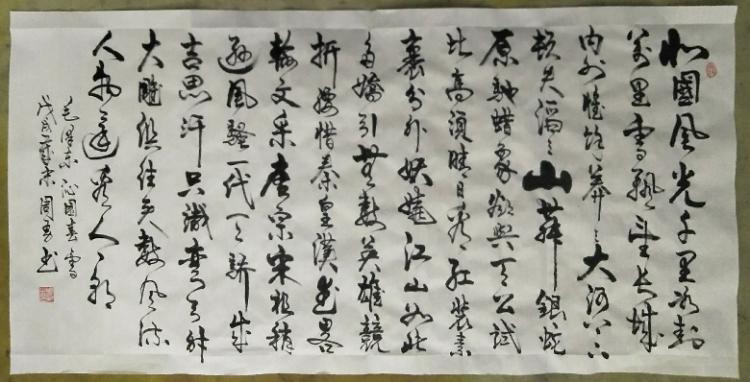 北國風光千里冰封
萬里雪飄望長城
內外惟餘莽莽大河上下
頓失滔滔山舞銀蛇
原馳蠟象欲與天公試
比高須晴日看紅裝素
裹分外妖嬈江山如此
多嬌引無數英雄競
折腰惜秦皇漢武略
輸文采唐宗宋祖稍
遜風騷一代天驕成
吉思汗只識彎弓射
大雕俱往矣數風流
人物還看今朝
毛澤東沁園春雪
戊戌年 周 書